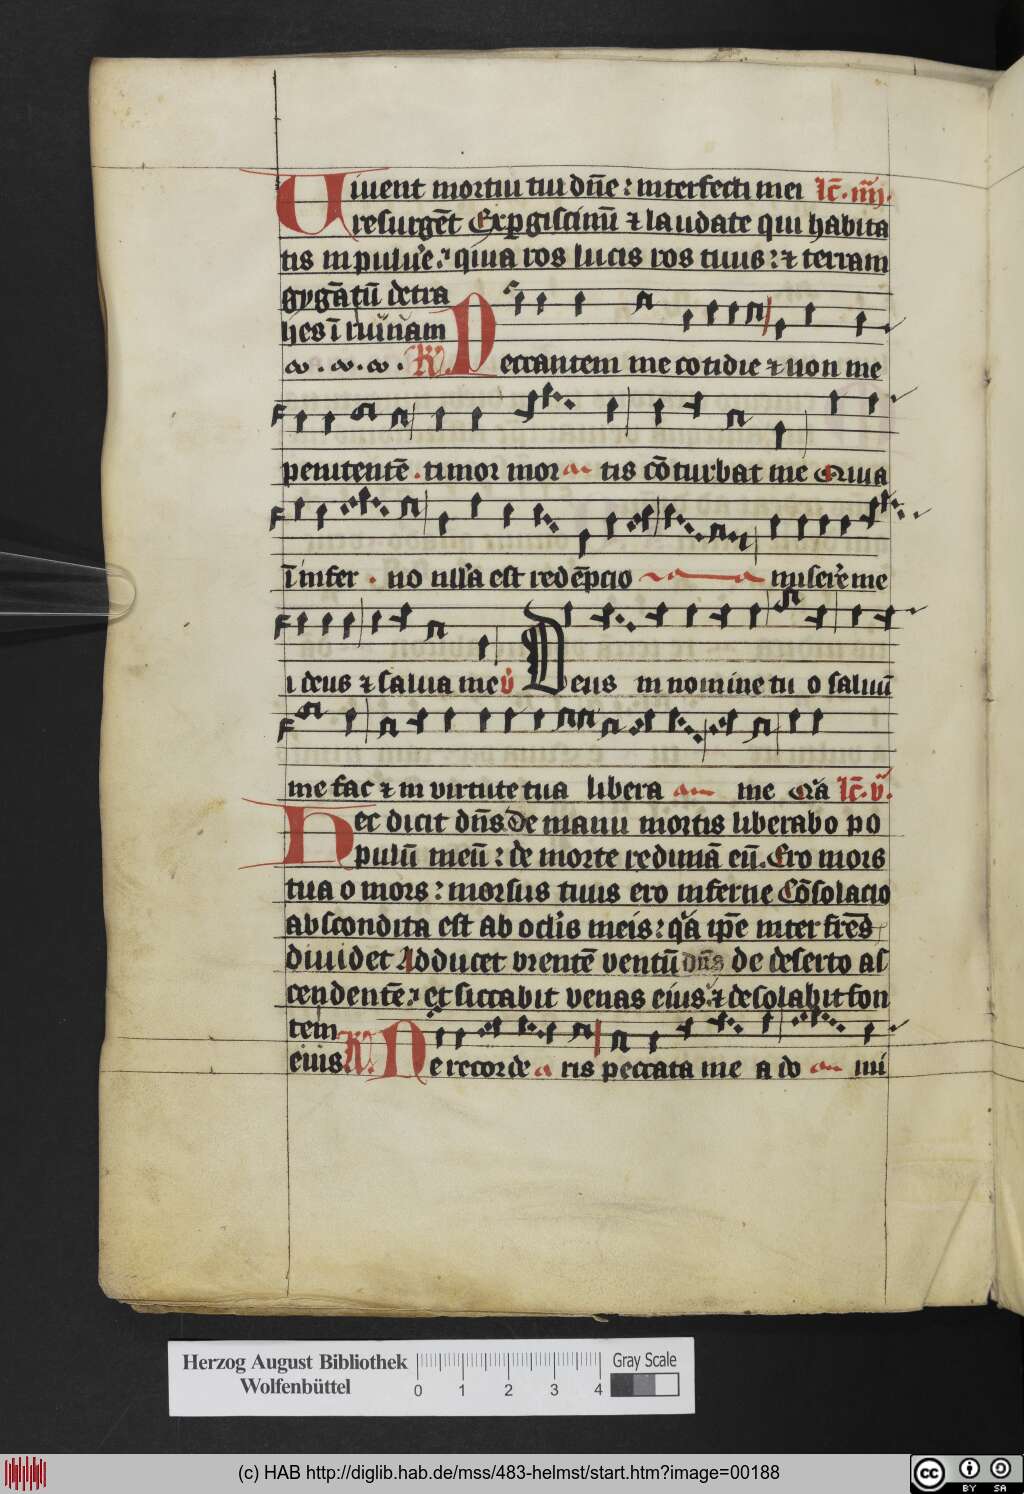 Viuent mortui tui dn̄e : interfecti mei lc̄. iiij.
resurgēt Expgiscimī ⁊ laudate qui habita
tis in puluˀe : quia ros lucis ros tuus : ⁊ terram
gygātū detra
hes ī ruinam
R. Peccantem me cotidie ⁊ non me
penitentē . timor mor tis cōturbat me Quia
ī infer . no nulla est redēpcio miserˀe me
i deus ⁊ salua me v̊ Deus in nomine tu o saluū
me fac ⁊ in virtute tua libera me Qia lc̄. v.
Hec dicit dn̄s De manu mortis liberabo po
pulū meū : de morte redimā eū. Ero mors
tua o mors : morsus tuus ero inferne Cōsolacio
abscondita est ab oclis meis : qa ipe inter fr̄es
diuidet Adducet vrentē ventū dn̄s de deserto as
cendentē : et siccabit venas eius ⁊ desolabit fon
tem
eius R. Ne recorde ris peccata me a do mi
Herzog August Bibliothek
Wolfenbüttel
0 1 2 3 4
Gray Scale
(c) HAB http://diglib.hab.de/mss/483-helmst/start.htm?image=00188
cc BY SA